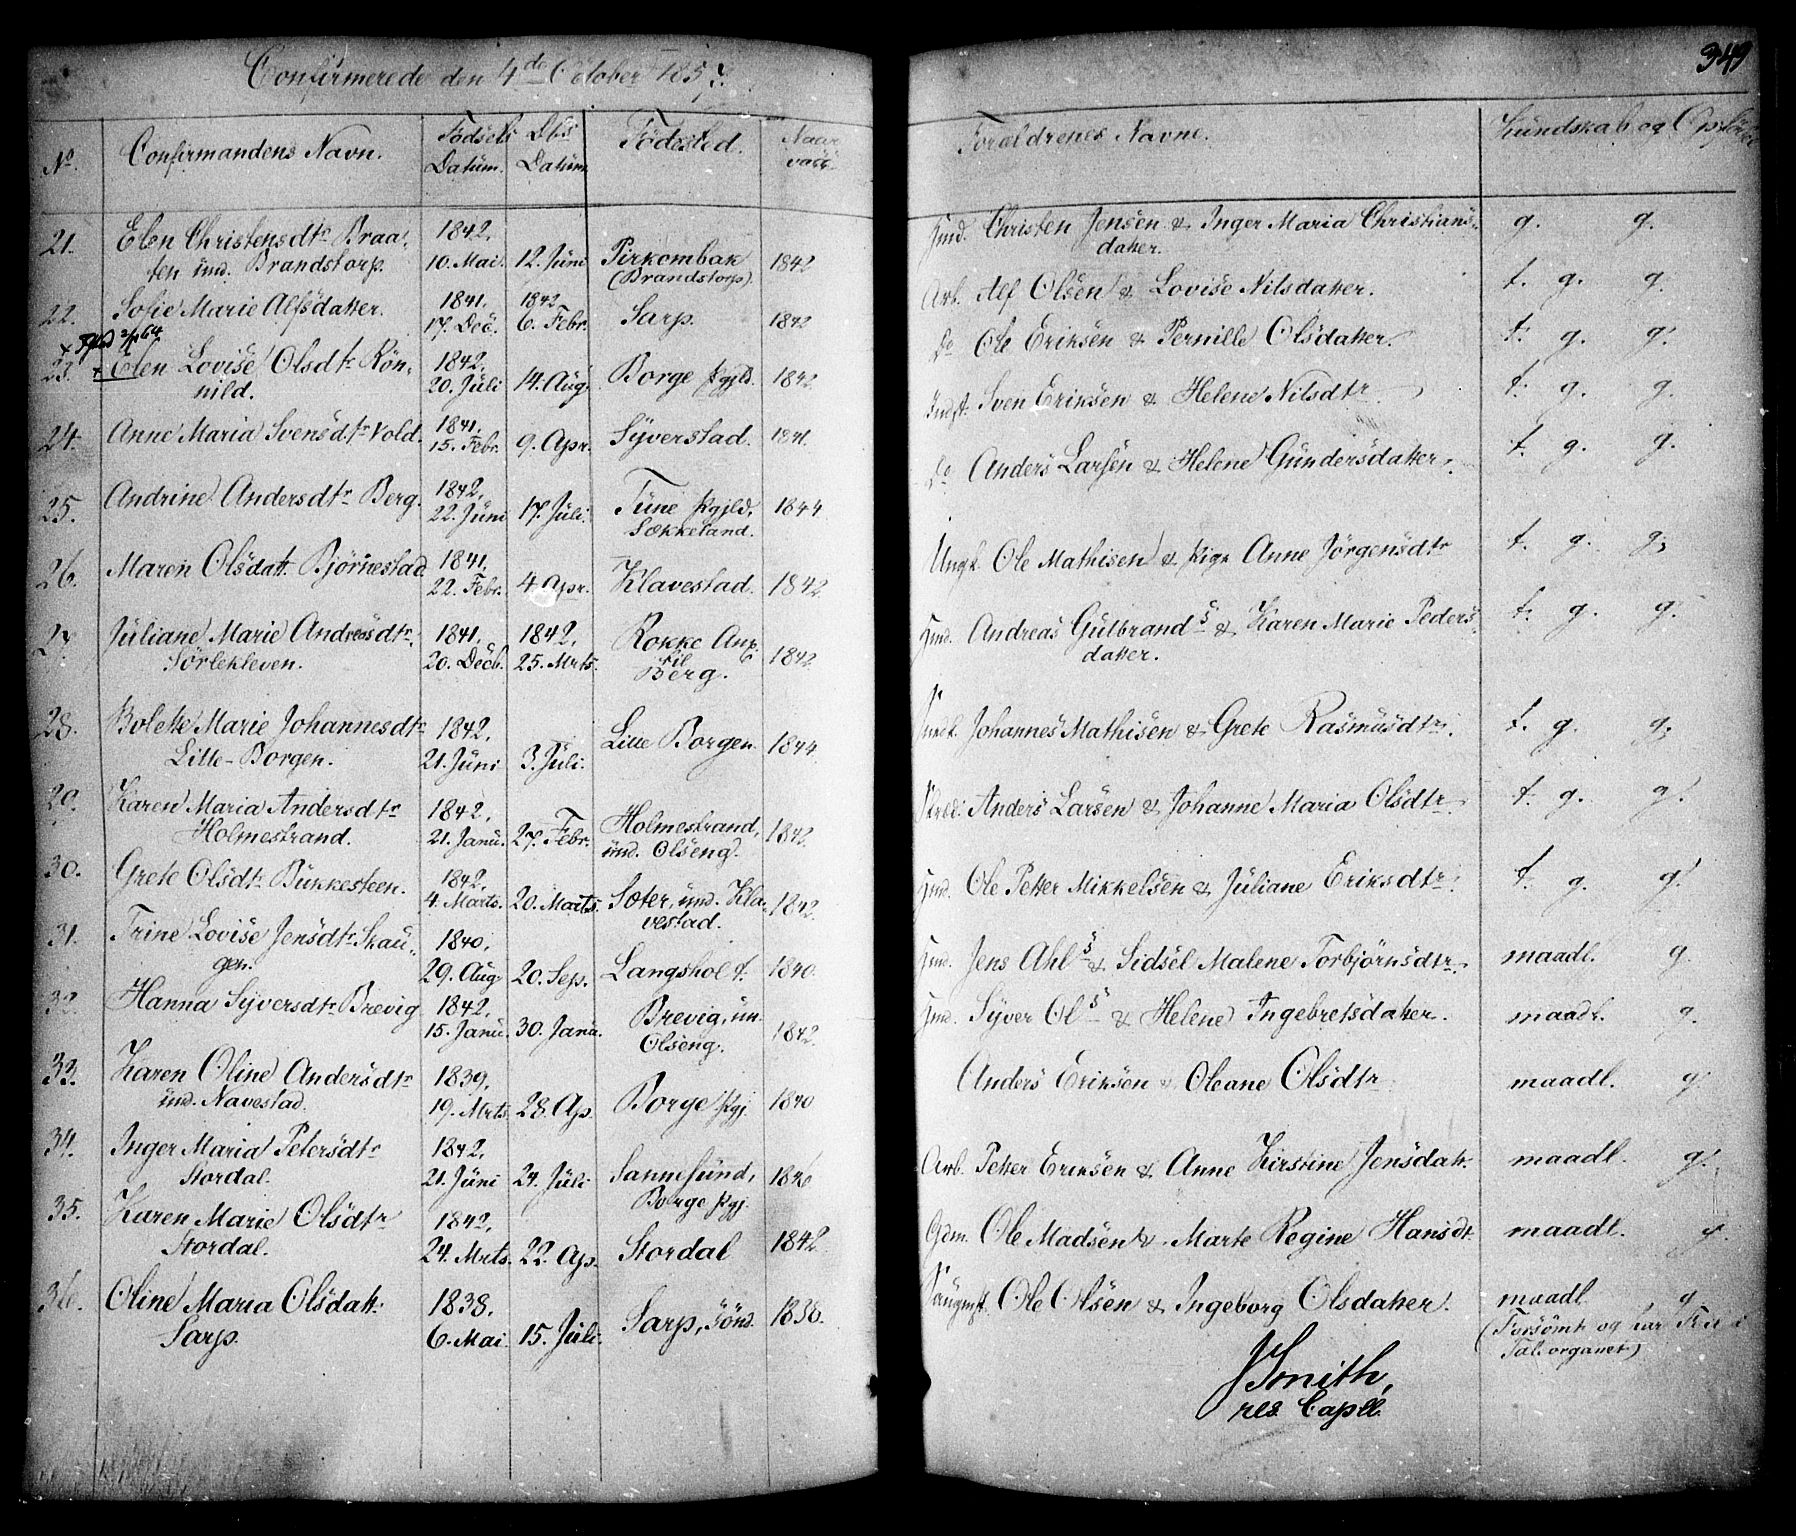 349
Confirmerede den 4de October 1857.
No. Confirmandens Navn. Födsels Datum. Dbs Datum. Födested. Naar vacc. Forældrenes Navne. Kundskab og
21. Elen Christensdtr Braa- 1842, Hmd. Christen Jensen & Inger Maria Christians- g. g.
ten und. Brandstorp. 10. Mai. 12. Juni Pirkombak 1842 datter.
(Brandstorp).
22. Sofie Marie Alfsdatter. 1841. 17. Dec. 1842 6. Febr. Sarp. 1842 Arb. Alf Olsen & Lovise Nilsdatter. t. g. g.
23. Elen Lovise Olsdtr Rön- 1842, Do Ole Eriksen & Pernille Olsdatter. t. g. g.
nild. 20. Juli 14. Aug Borge Pgjld. 1842.
24. Anne Maria Svensdtr Vold. 1841. 15. Febr. 9. Apr. Syverstad. 1841. Indst. Sven Eriksen & Helene Nilsdtr t. g. g.
25. Andrine Andersdtr Berg. 1842, 22. Juni 17. Juli. Tune Pgjld. 1844 Do Anders Larsen & Helene Gundersdatter. t. g. g.
Sækkeland.
26. Maren Olsdatt. Bjørnestad. 1841, 22. Febr. 4 Apr. Klavestad. 1842 Ungk. Ole Mathisen & Pige Anne Jörgensdtr t. g. g.
27 Juliane Marie Andreasdtr. 1841, 1842, Rokke Anx. Hmd. Andreas Gulbrands & Karen Marie Peders- t. g. g.
Sörlekleven. 20. Decb. 25. Mrts. til Berg. 1842. datter.
28. Bolette Marie Johannesdtr 1842, Lille Borgen. 1844. Indst. Johannes Mathisen & Grete Rasmusdtr. t. g. g.
Lille-Borgen. 21. Juni 3. Juli.
29. Karen Maria Andersdtr 1842, Holmestrand, 1842. Anders Larsen & Johanne Maria Olsdtr. t. g. g.
Holmestrand. 21. Janu. 27. Febr. und. Olseng.
30. Grete Olsdtr Bukkesteen. 1842. 4. Marts. 20. Marts. Sæter, und. Kla- 1842. Hmd. Ole Petter Mikkelsen & Juliane Eriksdtr. t. g. g.
vestad.
31. Trine Lovise Jensdtr Skau- 1840, Hmd. Jens Ahls & Sidsel Malene Torbjörnsdtr. maadl. g.
gen. 29. Aug 20. Sep. Langsholt. 1840.
32. Hanna Syversdtr Brevig 1842, 15. Janu. 30. Janu. Brevig, un. 1842. Hmd. Syver Ols & Helene Ingebretsdatter. maadl. g.
Olseng.
33. Karen Oline Andersdtr 1839, Anders Eriksen & Oleane Olsdtr maadl. g.
und. Navestad. 19. Mrts. 28. Ap. Borge Pgj. 1840
34. Inger Maria Petersdtr 1842, Arb. Petter Eriksen & Anne Kirstine Jensdatt. maadl. g.
Stordal. 21. Juni 24. Juli Sannesund, 1846
Borge Pgj.
35. Karen Marie Olsdtr 1842, Gdm. Ole Madsen & Marte Regine Hansdt. maadl. g.
Stordal. 24. Mrts. 22. Ap. Stordal 1842.
36. Oline Maria Olsdatt. 1838, Ole Olsen & Ingeborg Olsdatter. maadl. g
Sarp. 6. Mai. 15. Juli. Sarp, Sönd. 1838. (Forsömt og har Feil i
Talorganet)
J Smith,
res. Capll.